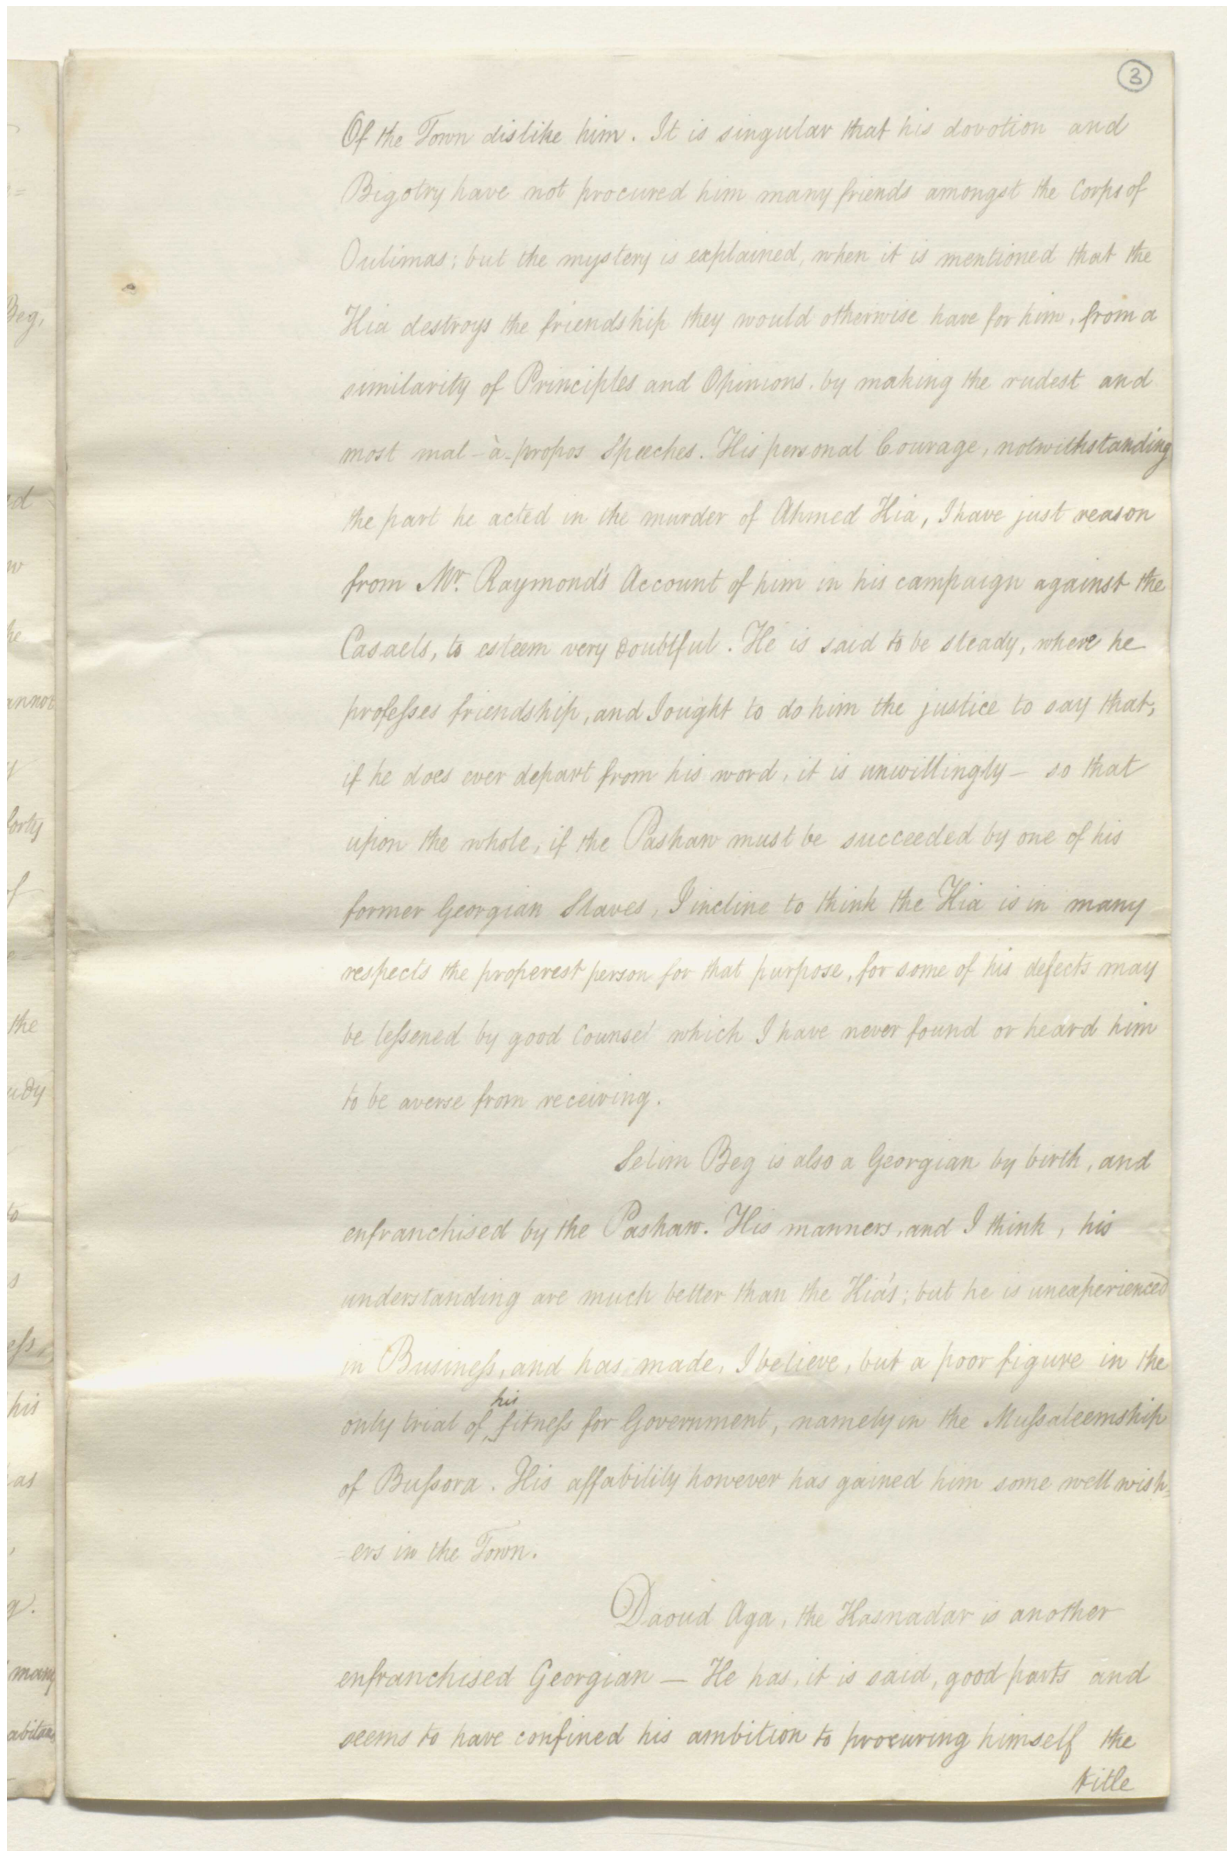 3
Of the Town dislike him. It is singular that his dovotion and
Bigotry have not procured him many friends amongst the Corps of
Oulimas; but the mystery is explained, when it is mentioned that the
Kia destroys the friendship they would otherwise have for him, from a
similarity of Principles and Opinions, by making the rudest and
most mal-à-propos Speeches. His personal Courage, notwithstanding
the part he acted in the murder of Ahmed Kia, I have just reason
from Mr. Raymond's Account of him in his campaign against the
Casaels, to esteem very doubtful. He is said to be steady, where he
professes friendship, and I ought to do him the justice to say that,
if he does ever depart from his word, it is unwillingly — so that
upon the whole, if the Pashaw must be succeeded by one of his
former Georgian Slaves, I incline to think the Kia is in many
respects the properest person for that purpose, for some of his defects may
be lessened by good Counsel which I have never found or heard him
to be averse from receiving.
Selim Beg is also a Georgian by birth, and
enfranchised by the Pashaw. His manners, and I think, his
understanding are much better than the Kia's; but he is unexperienced
in Business, and has made, I believe, but a poor figure in the
only trial of his fitness for Government, namely in the Mussaleemship
of Bussora. His affability however has gained him some well wish-
-ers in the Town.
Daoud Aga, the Hasnadar is another
enfranchised Georgian — He has, it is said, good parts and
seems to have confined his ambition to procuring himself the
title
Beg,
ed
w
he
annot
forty
of
the
udy
to
s
ess,
his
as
g.
many
abitan